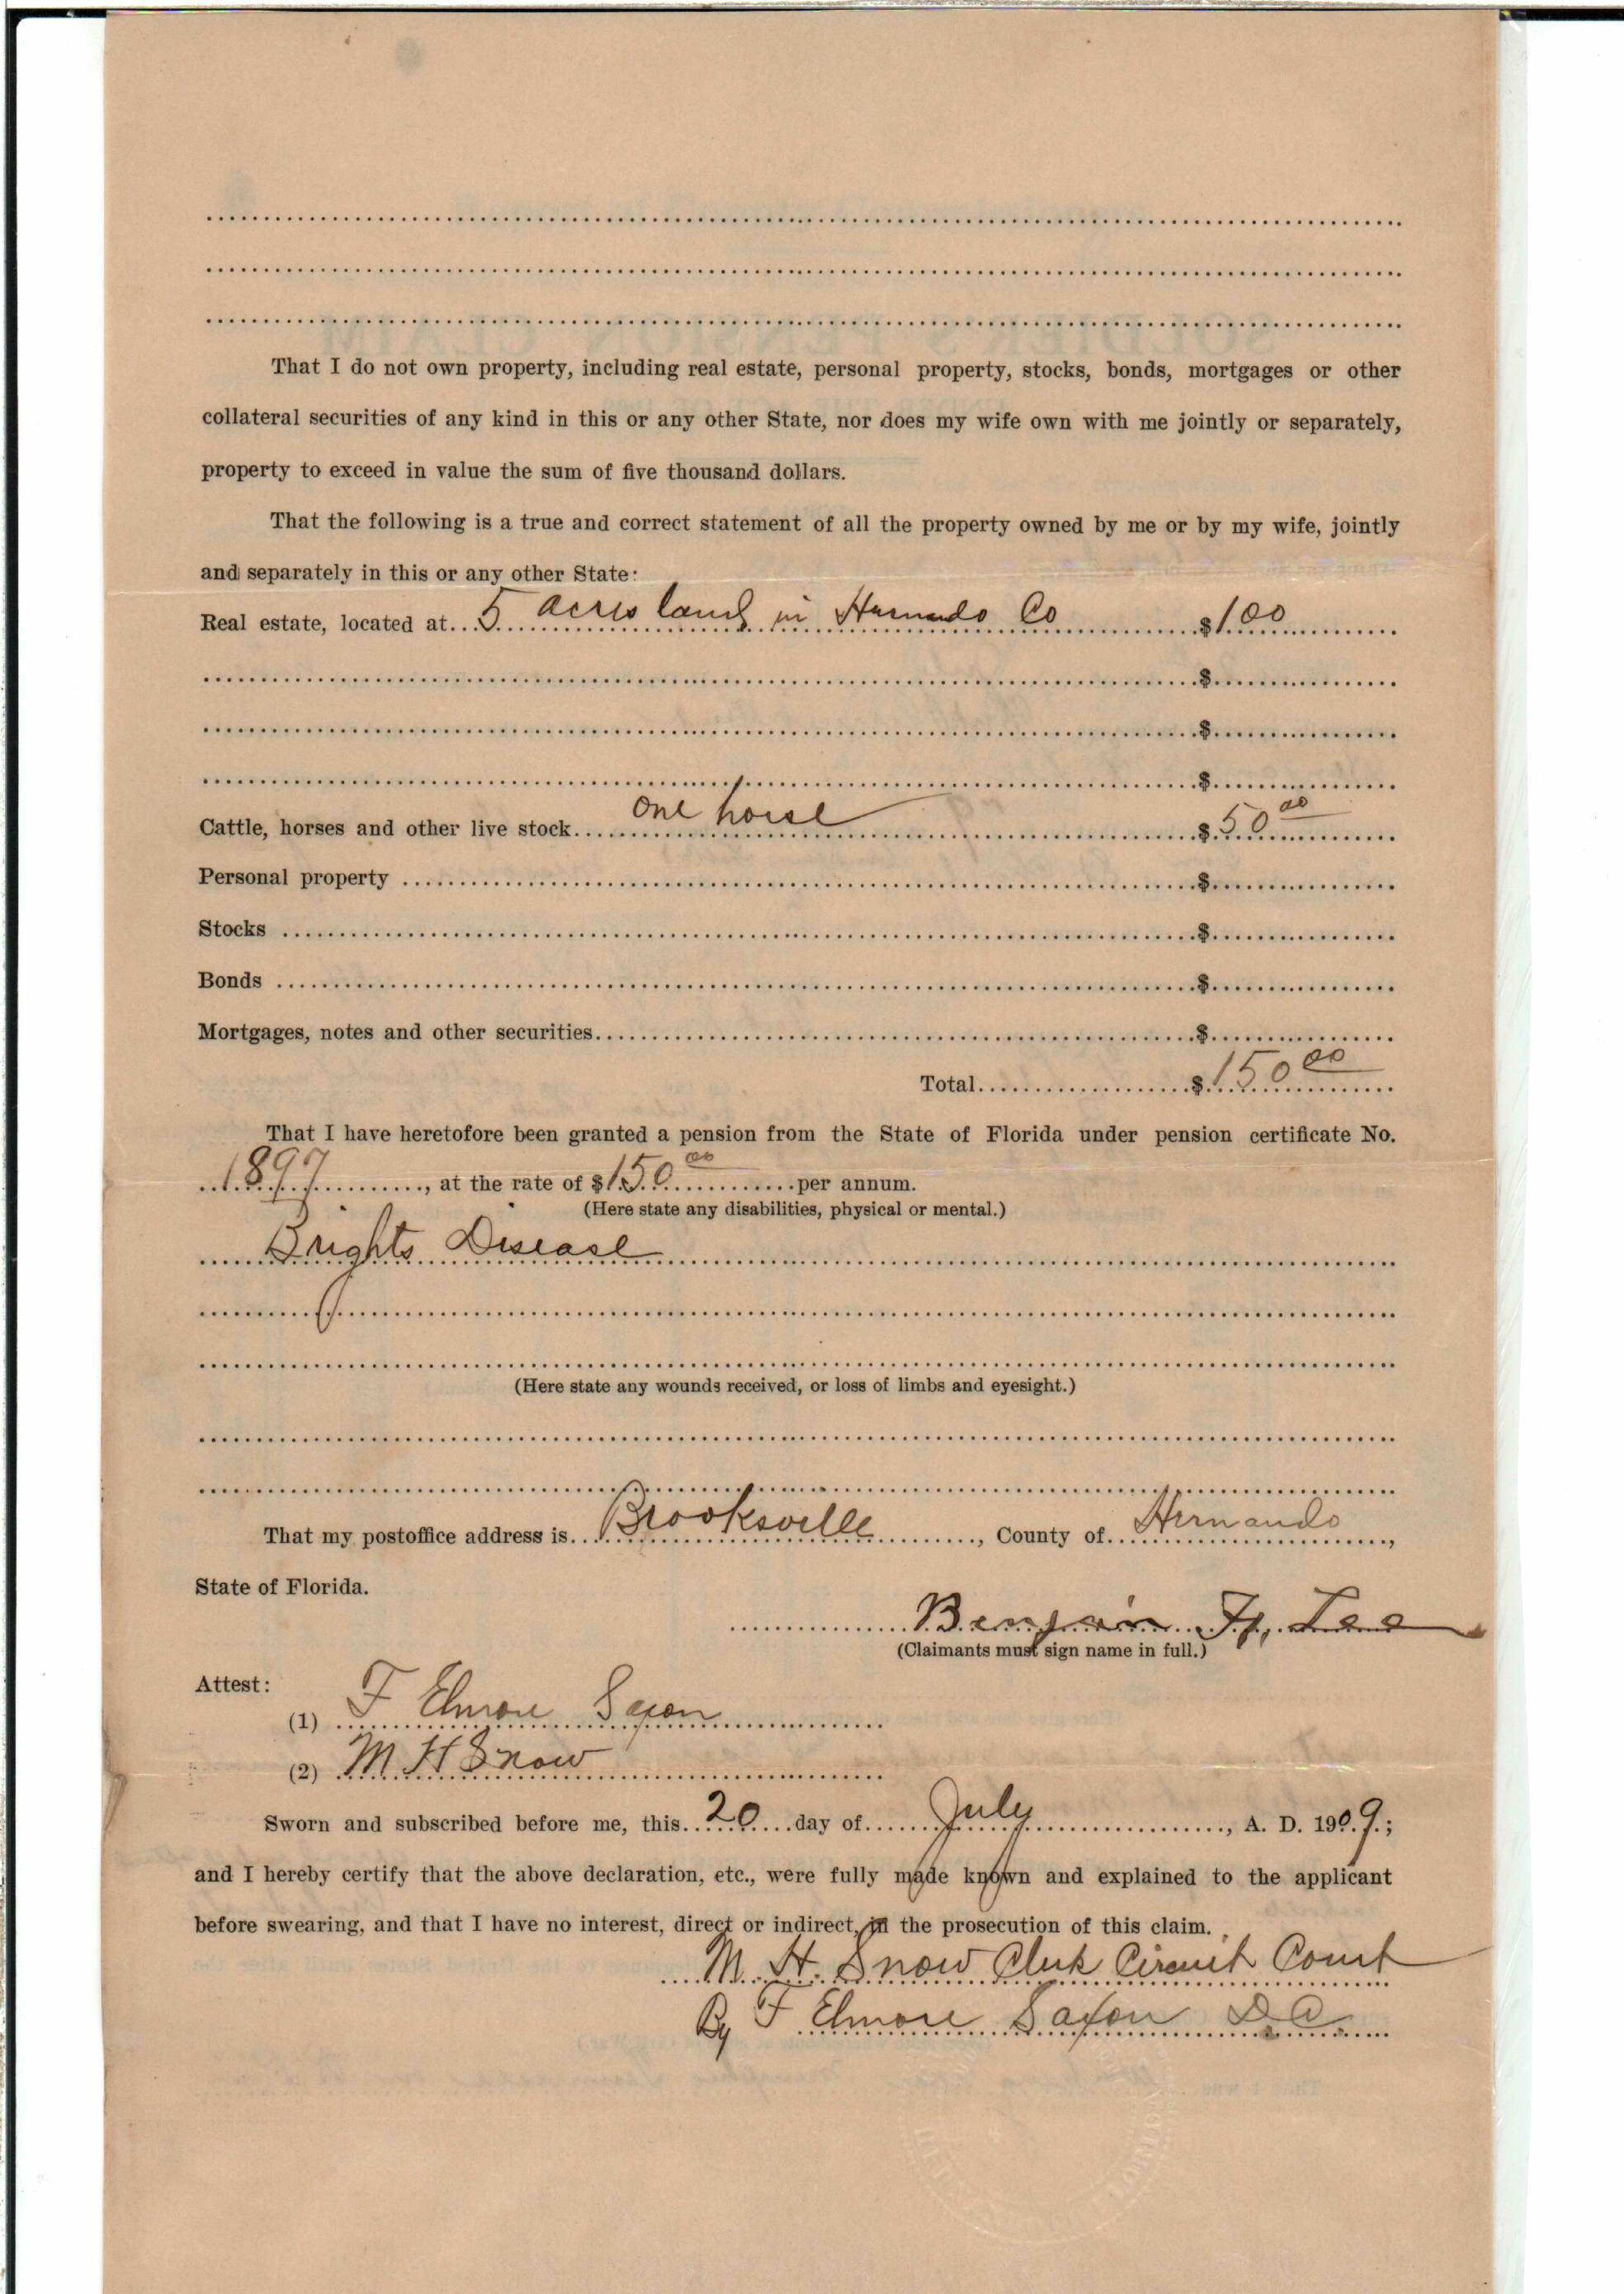 That I do not own property, including real estate, personal property, stocks, bonds, mortgages or other
collateral securities of any kind in this or any other State, nor does my wife own with me jointly or separately,
property to exceed in value the sum of five thousand dollars.
That the following is a true and correct statement of all the property owned by me or by my wife, jointly
and separately in this or any other State:
Real estate, located at 5 acres land in Hernando Co $100
$
$
$
Cattle, horses and other live stock One horse $50 00
Personal property $
Stocks $
Bonds $
Mortgages, notes and other securities $
Total $150 00
That I have heretofore been granted a pension from the State of Florida under pension certificate No.
1897, at the rate of $150 00 per annum.
(Here state any disabilities, physical or mental.)
Brights Disease
(Here state any wounds received, or loss of limbs and eyesight.)
That my postoffice address is Brooksville, County of Hernando,
State of Florida.
Benjamin F, Lee
(Claimants must sign name in full.)
Attest:
(1) F Elmore Saxon
(2) M H Snow
Sworn and subscribed before me, this 20 day of July, A. D. 1909.;
and I hereby certify that the above declaration, etc., were fully made known and explained to the applicant
before swearing, and that I have no interest, direct or indirect, in the prosecution of this claim.
M. H. Snow Clerk Circuit Court
By F Elmore Saxon D.C.